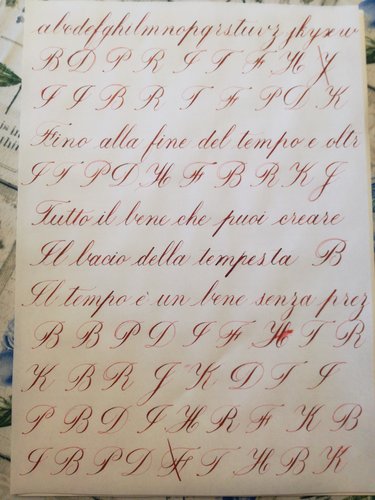 abcdefghilmnopqrstuvz jkyxw
B D P R I T F H Y
I I B R T F P D K
Fino alla fine del tempo e oltr
I T P D H F B R K J
Tutto il bene che puoi creare
Il bacio della tempesta B
Il tempo è un bene senza prez
B B P D I F H T R
K B R J K D T I
P B D I H R F K B
I B P D F T H B K